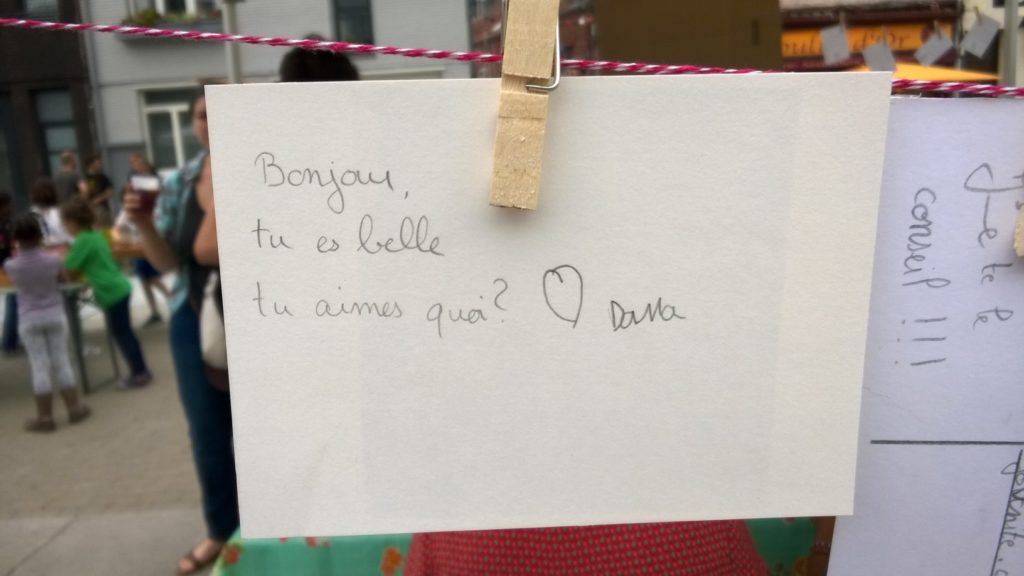 Bonjour,
tu es belle
tu aimes quoi?
J-e te le
conseil !!!